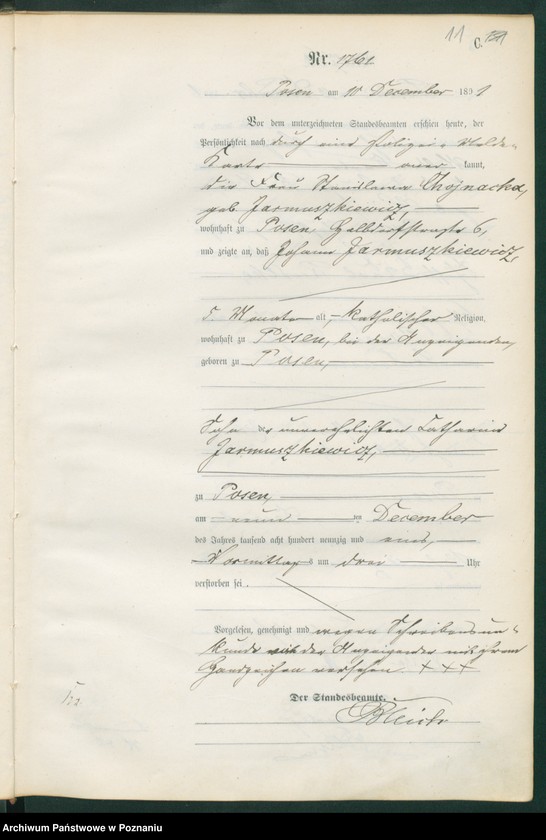 11
C.
Nr. 1761
Posen am 10 December 1891
Vor dem unterzeichneten Standesbeamten erschien heute, der
Persönlichkeit nach durch eine Polizei-Melde-
Karte kannt,
die Frau Stanislawa Chojnacka,
geb Jarmuszkiewicz,
wohnhaft zu Posen, Halbdorfstraße 6,
und zeigte an, daß Johann Jarmuszkiewicz,
5. Monate alt, katholischer Religion,
wohnhaft zu Posen, bei der Anzeigenden,
geboren zu Posen,
Sohn der unverehelichten Catharina
Jarmuszkiewicz,
zu Posen,
am neun ten December
des Jahres tausend acht hundert neunzig und eins,
Vormittags um drei Uhr
verstorben sei.
Vorgelesen, genehmigt und wegen Schreibensun-
kunde von der Anzeigenden mit ihrem
Handzeichen versehen. + + +
Der Standesbeamte.
Archiwum Państwowe w Poznaniu